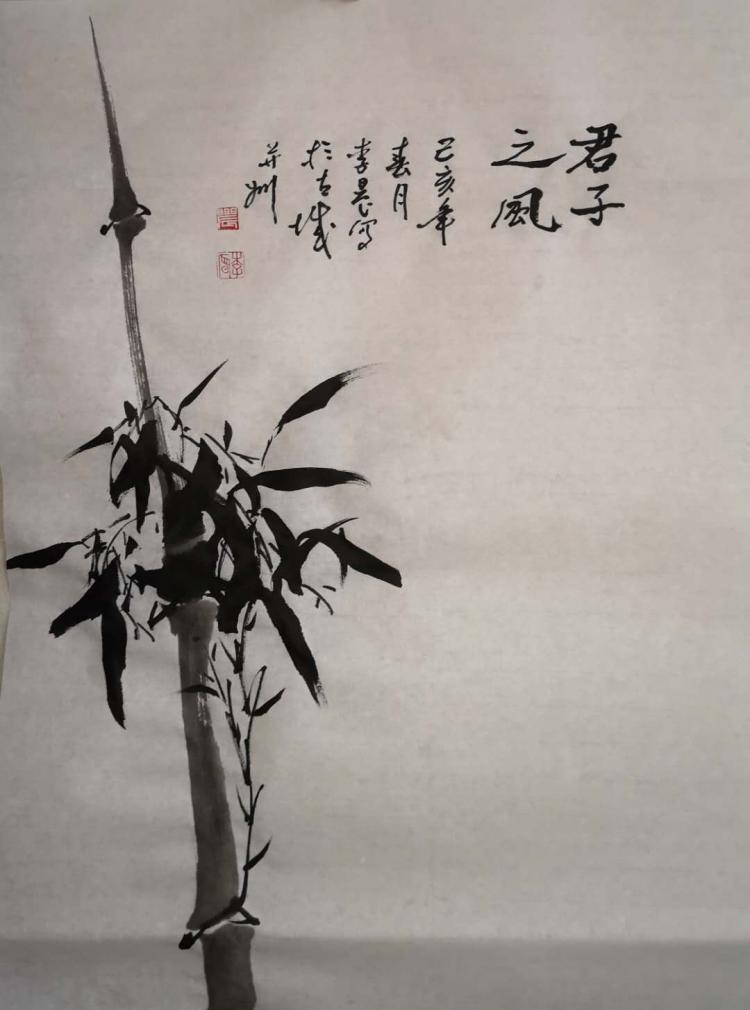 君子
之風
己亥年
春月
李晨寫
於古城
并州